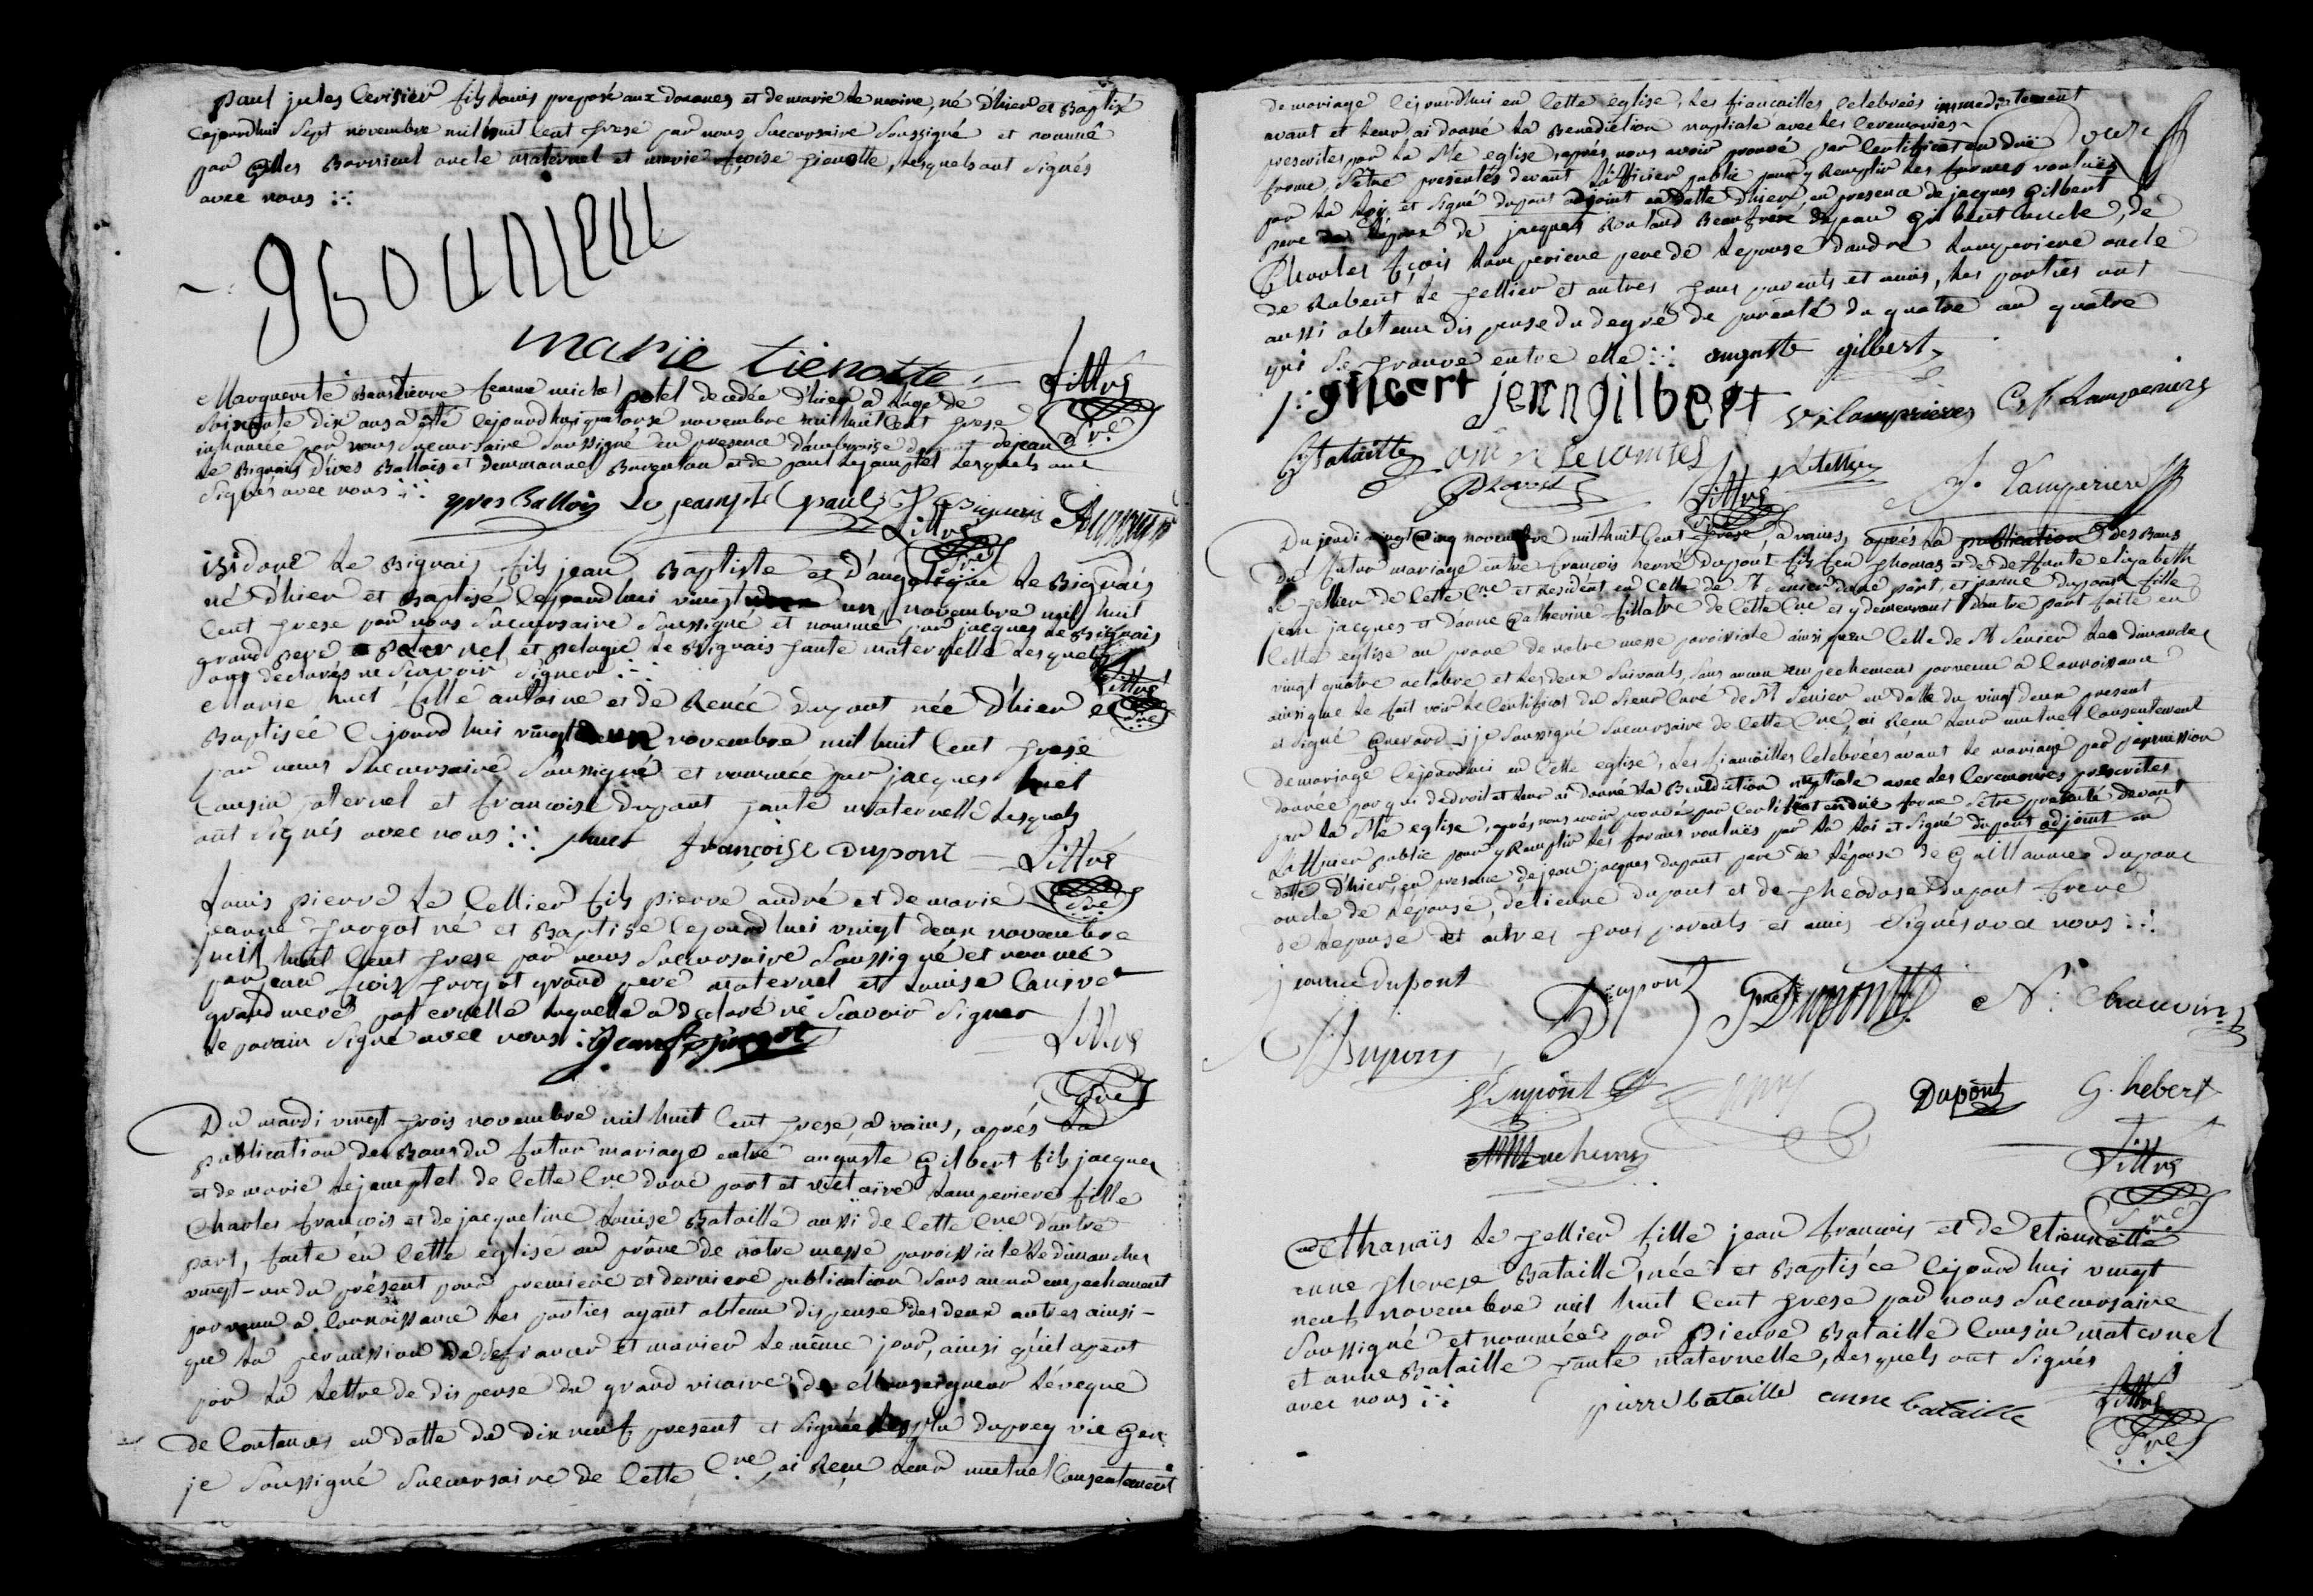 paul jules Cerisier fils louis preposé aux douanes et de marie le moine, né d'hier et Baptisé
cejourdhui sept novembre mil huit cent trese par nous succursaire soussigné et nommé
par gilles Bournieul oncle maternel et marie fçoise tienotte, lesquels ont signés
avec nous
marïe tienotte
Littré
Marguerite femme michel potel decedée d'hier a l'age de
soixante dix ans a été cejourdhui quatorse novembre mil huit cent trese
inhumée par nous succursaire soussigné en presence d'ambroise dupont de jean
le Bignais d'ives Ballois et d'emmanuel et de paul lejamptel lesquels ont
signés avec nous
yves Ballois Le jeamptel paul Le Bignais
Littré
isidore le Bignais fils jean Baptiste et d'angelique le Bignais
né d'hier et Baptisé cejourdhui vingt un novembre mil huit
cent trese par nous succursaire soussigné et nommé par jacques le Bignais
grand pere paternel et pelagie le Bignais tante maternelle lesquels
ont declarés ne scavoir signer
Littré
Marie huet fille antoine et de Renée dupont née d'hier et
Baptisée cejourdhui vingt un novembre mil huit cent trese
par nous succursaire soussigné et nommée par jacques huet
cousin paternel et francoise dupont tante maternelle lesquels
ont signés avec nous jhuet françoise Dupont Littré
Louis pierre le Cellier fils pierre andré et de marie
jeanne turgot né et Baptisé cejourdhui vingt deux novembre
mil huit cent trese par nous succursaire soussigné et nommé
par jean fçois turgot grand pere maternel et louise
grand mere paternelle laquelle a declaré ne scavoir signer
le parain signé avec nous Jean turgot
Littré
Du mardi vingt trois novembre mil huit cent trese, a vains, aprés la
publication des Bans du futur mariage entre auguste Gilbert fils jacques
et de marie lejamptel de cette Cne d'une part et victoire lamperiere fille
Charles françois et de jacqueline louise Bataille aussi de cette Cne d'autre
part, faite en cette eglise au prône de nôtre messe paroissiale le dimanche
vingt-un du présent pour premiere et derniere publication sans aucun empechement
parvenu a connoissance les parties ayant obtenu dispense des deux autres ainsi-
que la permission de se fiancer et marier le même jour, ainsi qu'il apert
par la lettre de dispense du grand vicaire de Monseigneur l'évêque
de Coutances en datte du dix neuf present et signée duprey vic Gen
je soussigné succursaire de cette Cne, ai Reçu leur mutuel consentement
de mariage cejourdhui en cette eglise, les fiancailles celebrées immediatement
avant et leur ai donné la Benediction nuptiale avec les ceremonies
prescrites par la Ste eglise, aprés nous avoir prouvé par certificat en duë
forme, s'etre presentés devant l'officier public pour y Remplir les formes voulues
par la loi, et signé dupont adjoint en datte d'hier, en presence de jacques Gilbert
pere de l'epoux de jacques Roulaud Beau frere de jean Gilbert oncle, de
Charles fçois lamperiere pere de l'epouse d'andre lamperiere oncle
de Robert le tellier et autres tous parents et amis, les parties ont
aussi obtenu dispense du degré de parenté du quatre au quatre
qui se trouve entre elle auguste gilbert
gilbert jean gilbert C F Lamperiere
Bataille Littré J. Lamperiere
Du jeudi vingt cinq novembre mil huit cent trese, a vains, aprés la publication des Bans
du futur mariage entre françois hervé dupont fils feu thomas et de deffunte elizabeth
le tellier de cette Cne et resident en celle de St Senier d'une part, et jeanne Dupont fille
jean jacques et d'anne Catherine fillatre de cette Cne et y demeurant d'autre part faite en
cette eglise au prone de notre messe paroissiale ainsi qu'en celle de St Senier les dimanches
vingt quatre octobre et les deux suivants, sans aucun empechement parvenu a connoissance
ainsi que le fait voir le certificat du sieur curé de St Senier en datte du vingt deux present
et signé Guerard, je soussigné succursaire de cette Cne, ai Recu leur mutuel consentement
de mariage cejourdhui en cette eglise, les fiancailles celebrées avant le mariage par permission
donnée par qui de droit et leur ai donné la Benediction nuptiale avec les ceremonies prescrites
par la Ste eglise, aprés nous avoir prouvé par certificat en duë forme s'etre presenté devant
l'officier public pour y Remplir les formes voulues par la loi et signé dupont adjoint en
datte d'hier, en presence de jean jacques dupont pere de l'épouse de Guillaume dupont
oncle de l'épouse, d'etienne dupont et de theodose dupont frere
de l'epouse et autres tous parents et amis signés avec nous
jeanne dupont Dupont Dupont N. Chauvin
Dupont
Dupont Dupont G. hebert
Littré
Athanaïs le tellier fille jean francois et de etiennette
anne therese Bataille, née et Baptisée cejourdhui vingt
neuf novembre mil huit cent trese par nous succursaire
soussigné et nommée par Pierre Bataille cousin maternel
et anne Bataille tante maternelle, lesquels ont signés
avec nous pierre bataille anne bataille Littré